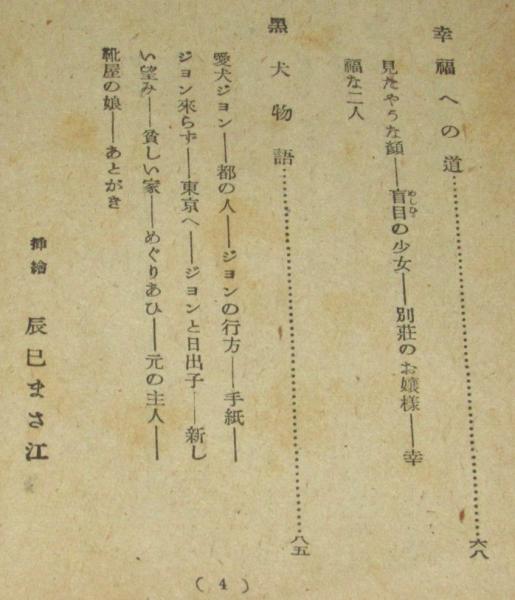 幸福への道……………………六八
見たやうな顔――盲目の少女――別莊のお嬢様――幸
めしひ
福な二人
黒犬物語……………………八五
愛犬ジョン――都の人――ジョンの行方――手紙――
ジョン來らず――東京へ――ジョンと日出子――新し
い望み――貧しい家――めぐりあひ――元の主人――
靴屋の娘――あとがき
挿繪 辰巳まさ江
( 4 )